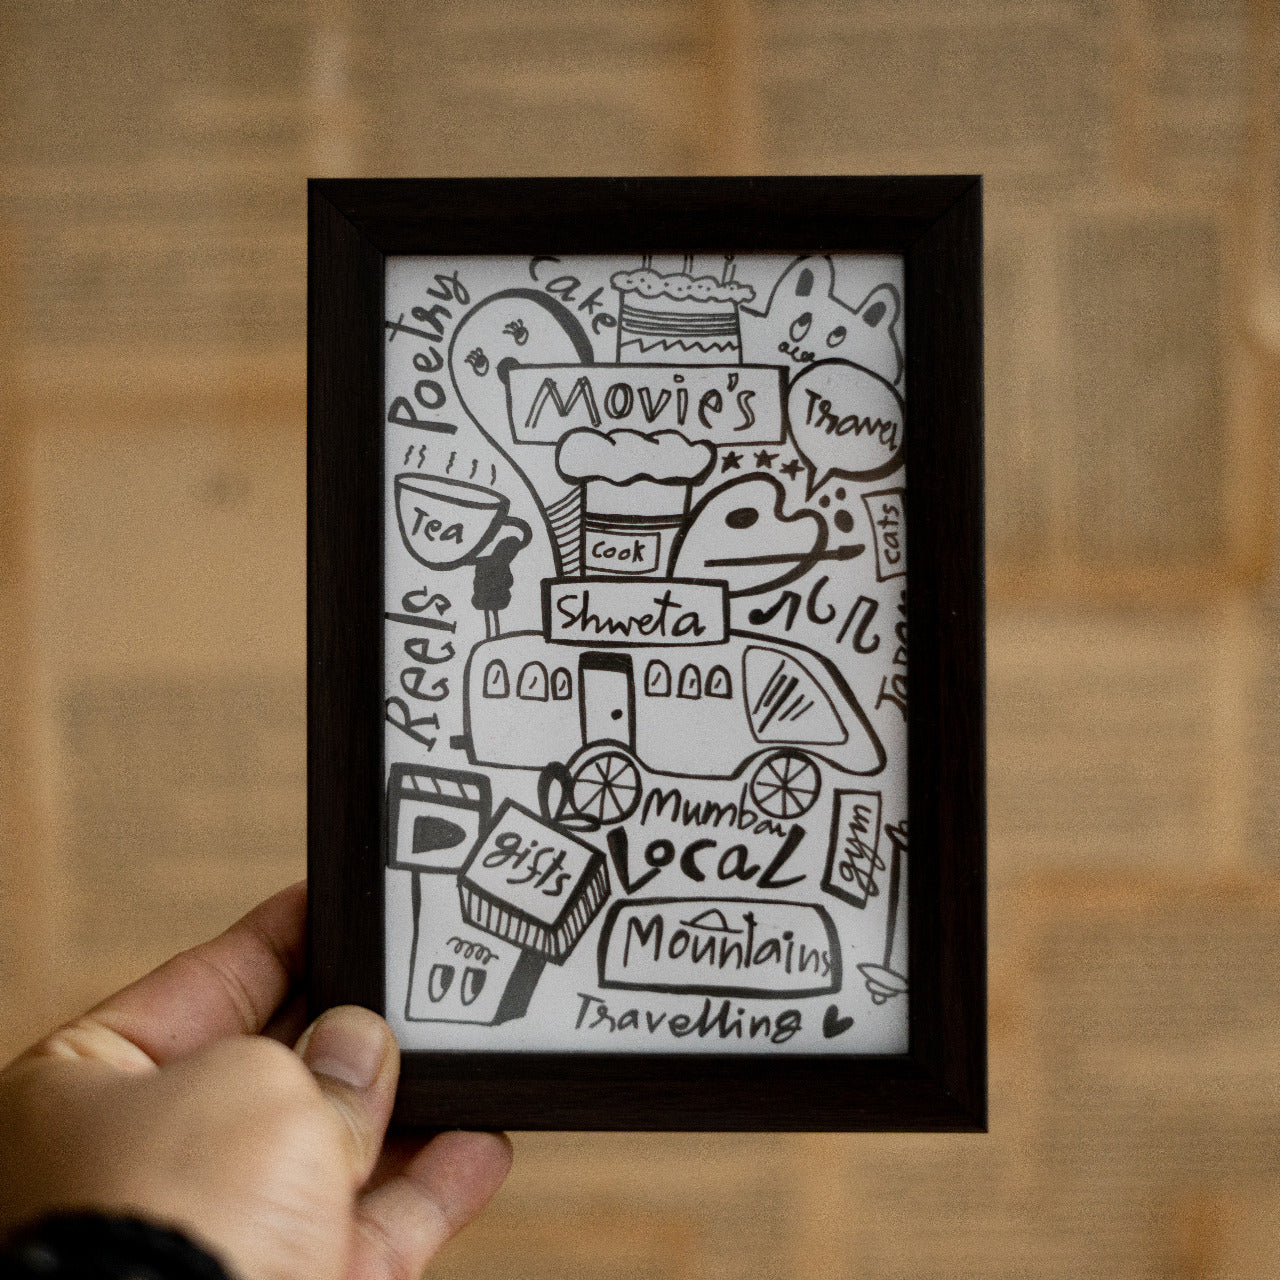 Cake
Poetry
Movie's
Travel
Tea
Cook
cats
Shweta
Japan
Reels
Mumbai
Local
gym
gifts
Mountains
Travelling